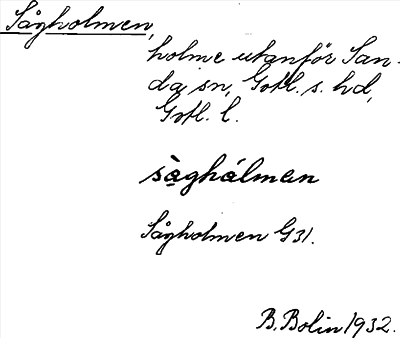 Sågholmen,
holme utanför San-
da sn, Gotl. s. hd,
Gotl. l.
sàghálmen
Sågholmen G31.
B. Bolin 1932.